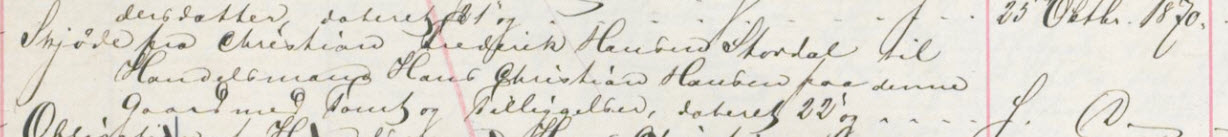 dersdatter, dateret 21' og . . . . . . . . 25' Oktbr. 1870.
Skjøde fra Christian Frederik Hansen Stordal til
Handelsmand Hans Christian Hansen paa denne
Gaard med Tomt og Tilliggelser, dateret 22' og . . . . S. D.
Obligation